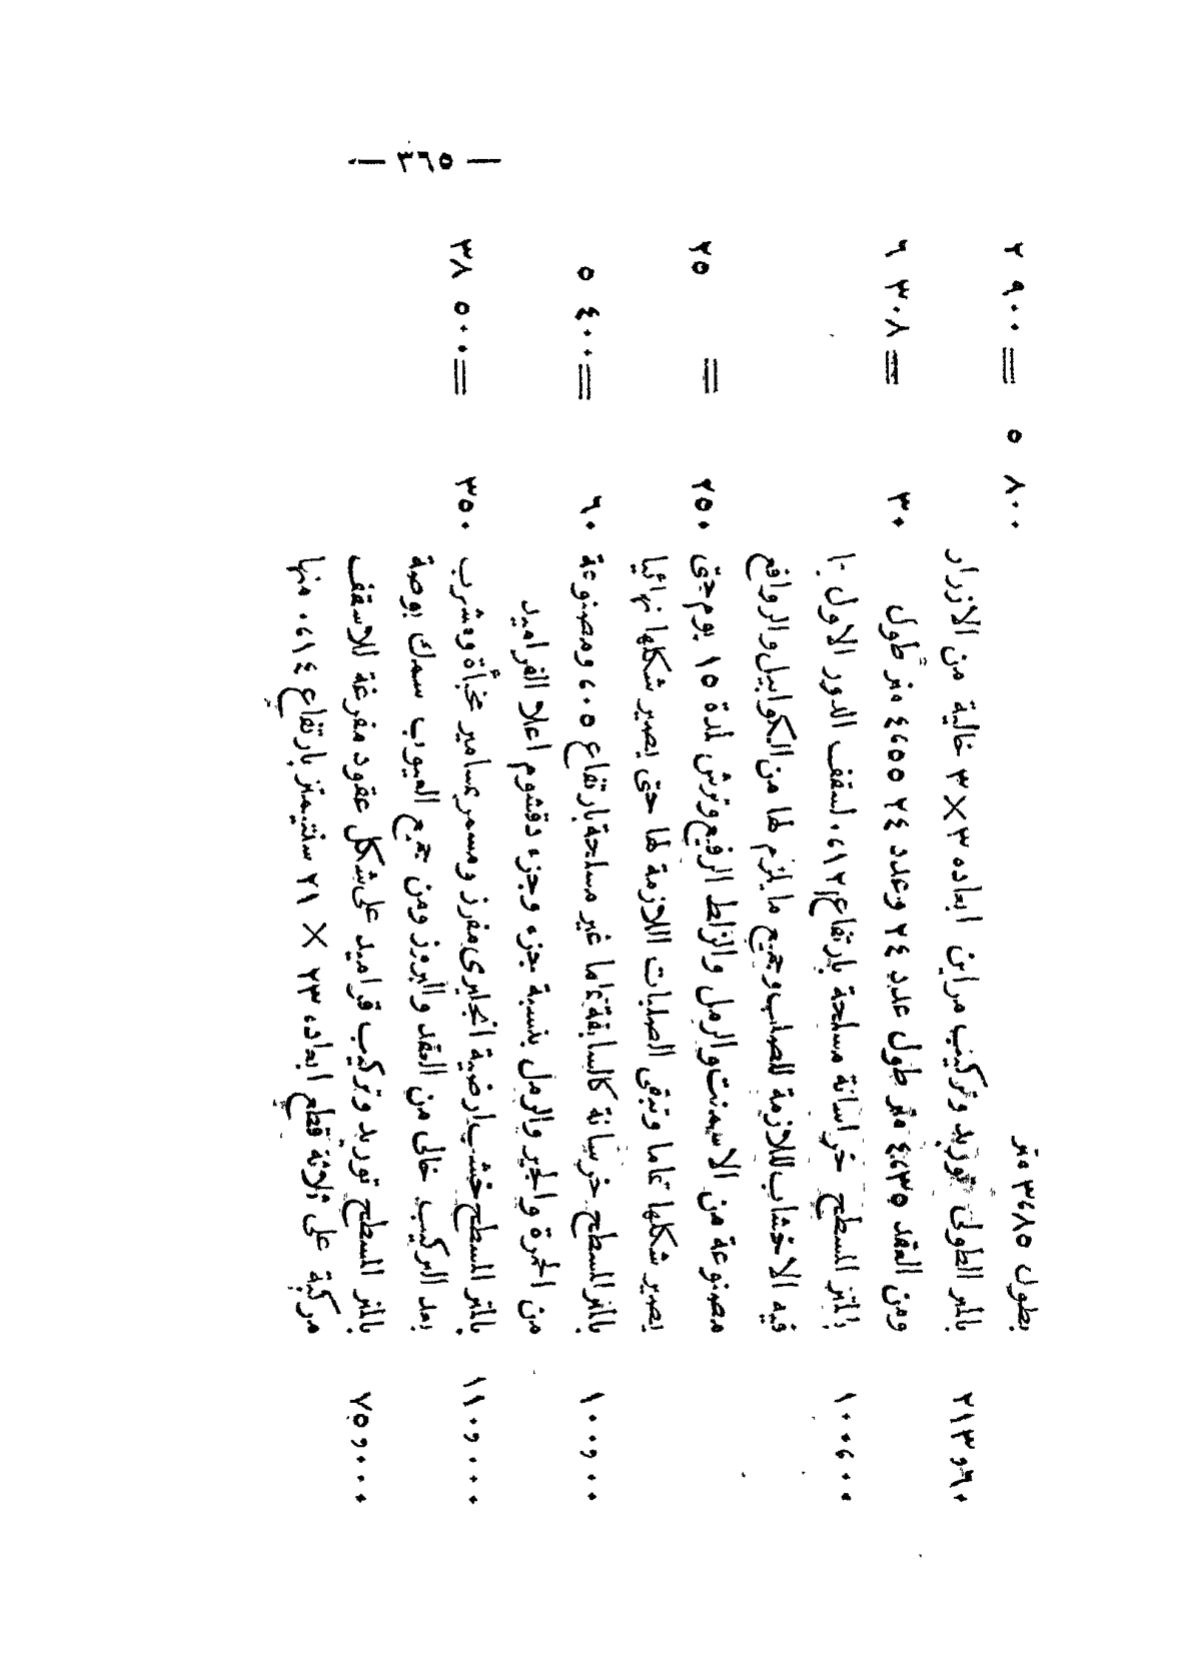 — ٣٦٥ —
بطول ٣٬٨٥ متر ٥ ٨٠٠ = ٢ ٩٠٠
٢١٣و٦٠ بالمتر الطولى توريد وتركيب مراين ابعاده ٣ × ٣ خالية من الازرار
ومن العقد ٤٬٣٥ متر طول عدد ٢٤ وعدد ٢٤ ٤٬٥٥ متر طول ٣٠ = ٦ ٣٠٨
١٠٠٬٠٠ بالمتر المسطح خراسانة مسلحة بارتفاع ٠٬١٢ لسقف الدور الاول
فيه الاخشاب اللازمة للصلب وجميع ما يلزم لها من الكوابيل والروافع
مصنوعة من الاسمنت والرمل والزلط الرفيع وترش لمدة ١٥ يوم حتى ٢٥٠ = ٢٥
يصير شكلها تماما وتبقى الصلبات اللازمة لها حتى يصير شكلها نهائيا
١٠٠و٠٠ بالمتر المسطح خرسانة كالسابقة تماما غير مسلحة بارتفاع ٠٬٠٥ ومصنوعة ٦٠ = ٥ ٤٠٠
من الحمرة والجير والرمل بنسبة جزء وجزء دقشوم اعلا القراميد
١١٠و٠٠٠ بالمتر المسطح خشب ارضية انجليزى مفرز ومسمر بمسامير مخبأة ومشرب ٣٥٠ = ٣٨ ٥٠٠
بعد التركيب خالى من العقد والبروز ومن جميع العيوب سمك بوصة
٧٥و٠٠٠ بالمتر المسطح توريد وتركيب قراميد على شكل عقود مفرغة للاسقف
مركبة على ثلاثة قطع ابعاده ٢٣ × ٢١ سنتيمتر بارتفاع ٠٬١٤ منها